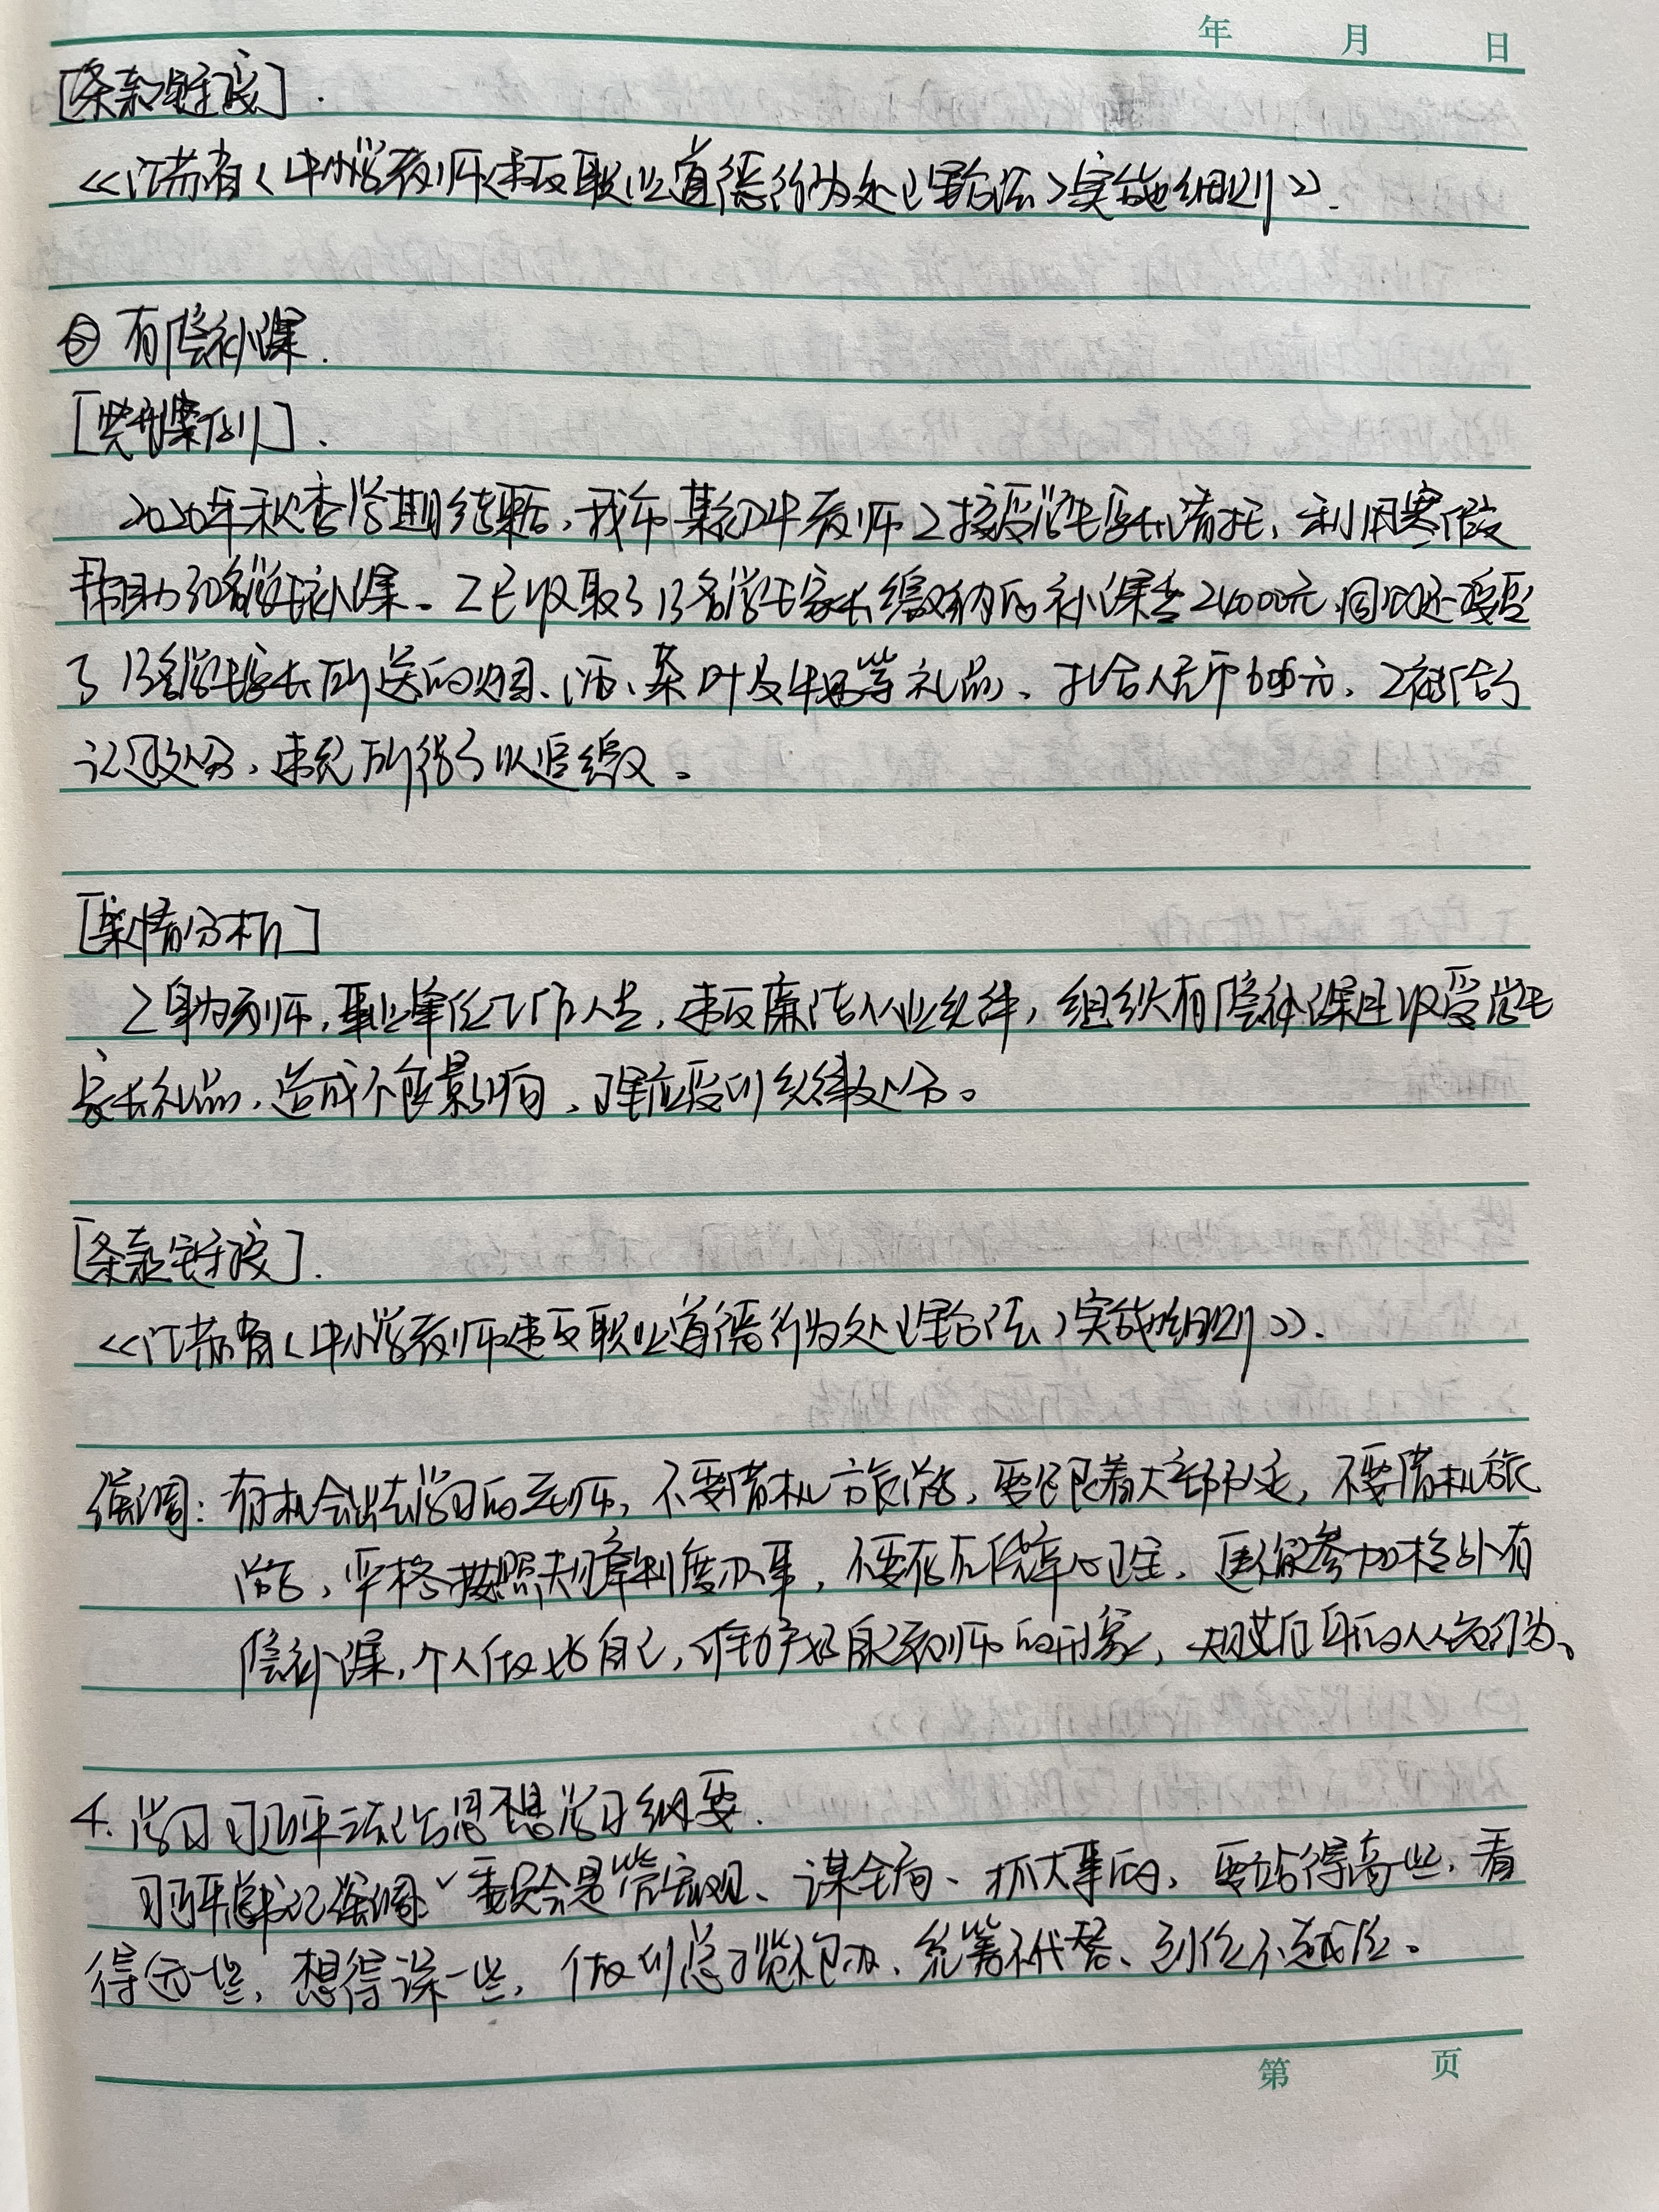 年 月 日
[条款链接].
《江苏省〈中小学教师违反职业道德行为处理办法〉实施细则》.
② 有偿补课.
[典型案例].
2020年秋季学期结束后,我市某初中教师Z接受学生家长请托,利用寒假
帮助30名学生补课。Z已收取了13名学生家长缴纳的补课费24000元,同时还接受
了13名学生家长所送的烟、酒、茶叶及牛奶等礼品、折合人民币 元,Z被给予
记过处分,违纪所得予以追缴。
[案情分析]
Z身为教师,事业单位工作人员,违反廉洁从业纪律,组织有偿补课且收受学生
家长礼品,造成不良影响,理应受到纪律处分。
[条款链接].
《江苏省〈中小学教师违反职业道德行为处理办法〉实施细则》.
强调:有机会出去学习的老师,不要借机旅游,要跟着大部队走,不要借机旅
游,严格按照规章制度办事,不要存在侥幸心理,更不能参加校外有
偿补课,个人做好自己,维护好自己教师的形象,规范自身的 行为、
4. 学习习近平法治思想学习纲要.
习近平总书记强调“委员会是管宏观、谋全局、抓大事的,要站得高一些,看
得远一些,想得深一些,做到总揽不包办、统筹不代替、到位不越位。
第 页